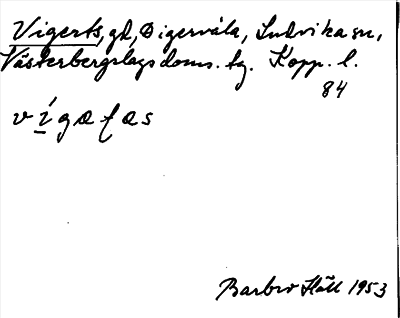 Vigerts, gd, Digervåla, Ludvika sn,
Västerbergslags doms. tg. Kopp. l.
84
vígaſas
Barbro Häll 1953